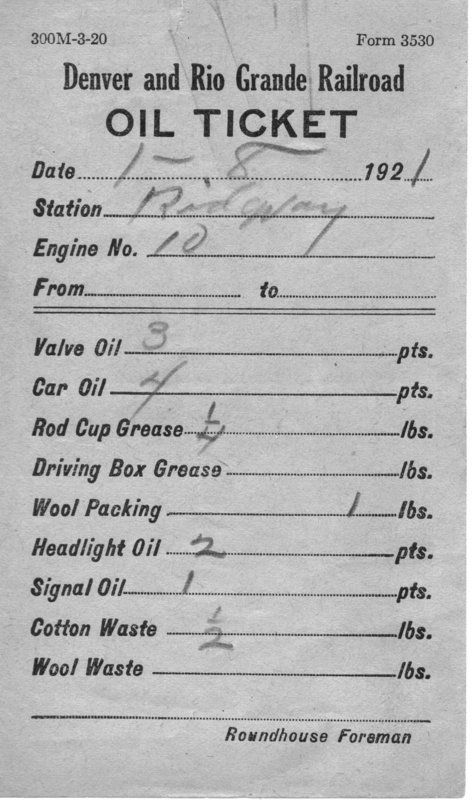 300M-3-20 Form 3530
Denver and Rio Grande Railroad
OIL TICKET
Date 1-8 1921
Station Ridgway
Engine No. 10
From to
Valve Oil 3 pts.
Car Oil 4 pts.
Rod Cup Grease 1/4 lbs.
Driving Box Grease lbs.
Wool Packing 1 lbs.
Headlight Oil 2 pts.
Signal Oil 1 pts.
Cotton Waste 1/2 lbs.
Wool Waste lbs.
Roundhouse Foreman